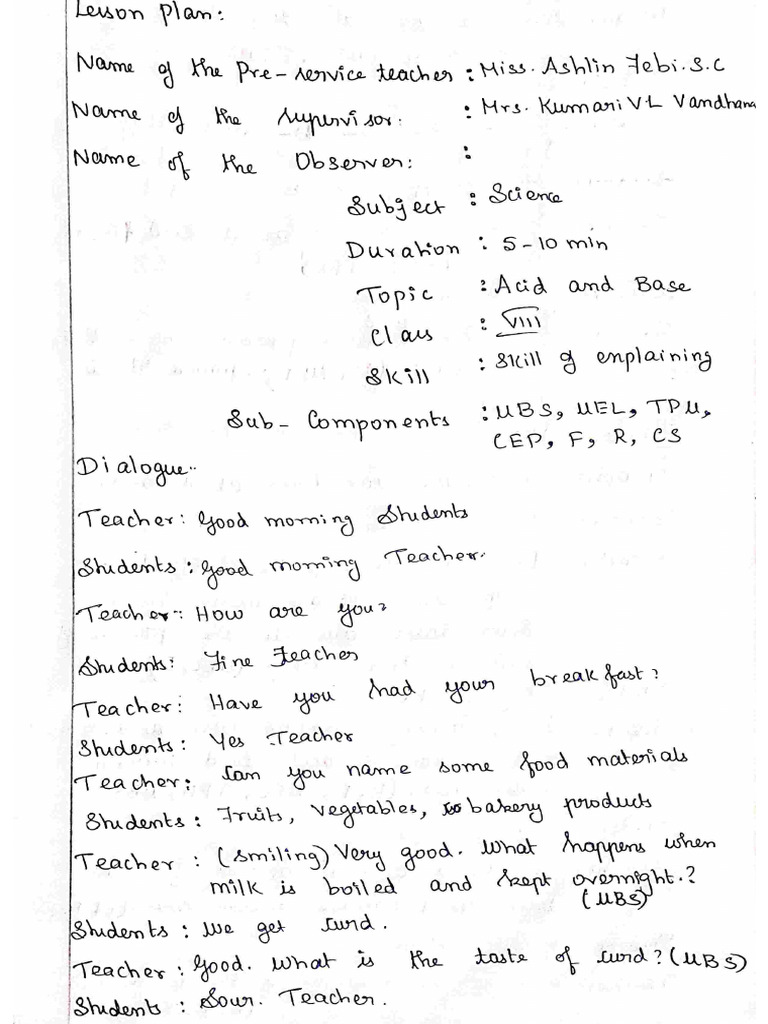 Lesson Plan:
Name of the Pre-service teacher : Miss. Ashlin Febi.S.C
Name of the Supervisor: : Mrs. Kumari VL Vandhana
Name of the Observer: :
Subject : Science
Duration : 5-10 min
Topic : Acid and Base
Class : VIII
Skill : Skill of enplaining
Sub-Components : UBS, UEL, TPU,
CEP, F, R, CS
Dialogue..
Teacher: Good morning Students
Students: Good morning Teacher.
Teacher: How are you?
Students: Fine Teacher
Teacher: Have you had your breakfast?
Students: Yes Teacher
Teacher: Can you name some food materials
Students: Fruits, vegetables, bakery products
Teacher : (Smiling) Very good. What happens when
milk is boiled and kept overnight.?
(UBS)
Students : We get curd.
Teacher : Good. What is the taste of curd? (UBS)
Students : Sour. Teacher.